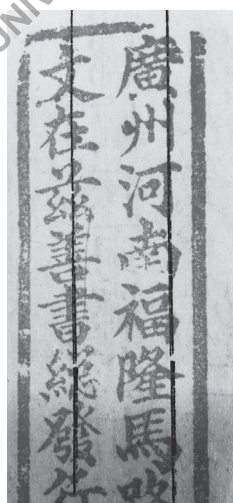 廣州河南福隆馬路
文在茲善書總發行
UNIV